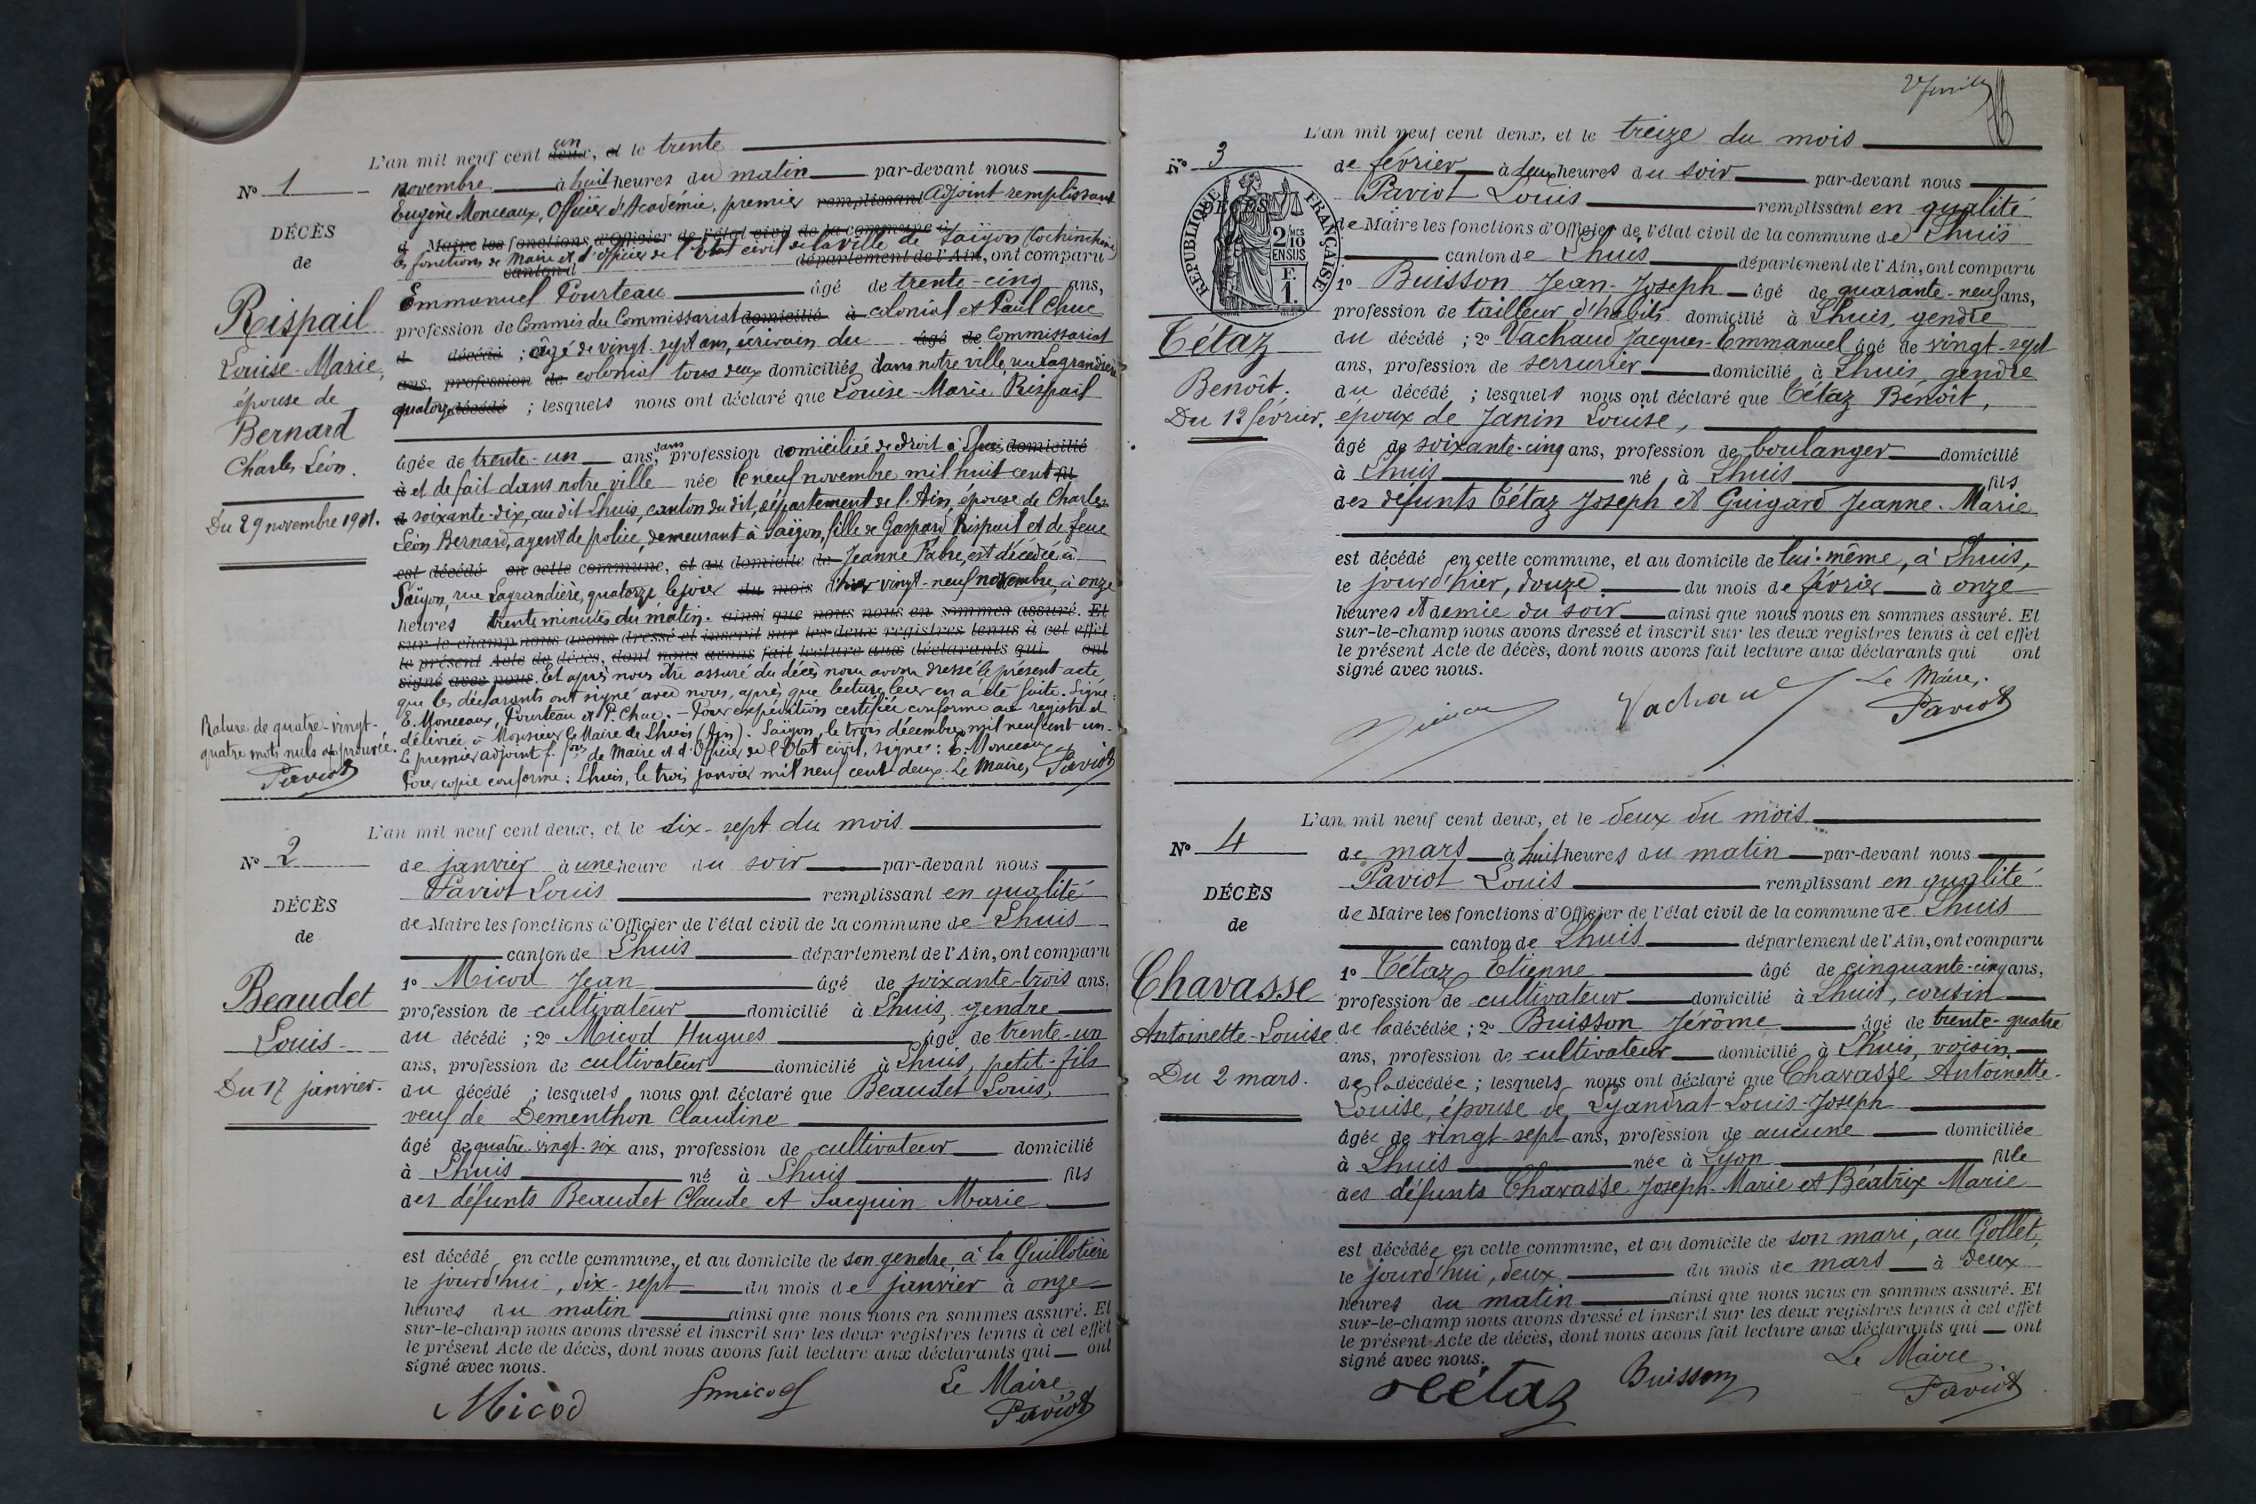 L'an mil neuf cent un deux, et le trente
N° 1
novembre à huit heures du matin par-devant nous
Eugène Monceaux, Officier d'Académie, premier remplissant Adjoint remplissant
DÉCÈS
d Maire les fonctions d'Officier de l'état civil de la commune d
de
les fonctions de Maire et d'Officier de l'Etat civil de la ville de Saïgon (Cochinchine)
canton d département de l'Ain, ont comparu
Emmanuel Pourteau âgé de trente-cinq ans,
Rispail
profession de Commis du Commissariat domicilié à colonial et Paul Chuc
d décédé ; âgé de vingt-sept ans, écrivain du âgé de Commissariat
Louise-Marie,
ans, profession de colonial tous deux domiciliés dans notre ville rue Lagrandière
épouse de
quatorze décédé ; lesquels nous ont déclaré que Louise-Marie Rispail
Bernard
Charles Léon.
âgée de trente-un ans, sans profession domiciliée de droit à Lhuis domicilié
à et de fait dans notre ville née le neuf novembre mil huit cent fil
Du 29 novembre 1901.
d soixante-dix, au dit Lhuis, canton du dit, département de l'Ain, épouse de Charles
Léon Bernard, agent de police, demeurant à Saïgon, fille de Gaspard Rispail et de feue
est décédé en cette commune, et au domicile de Jeanne Fabre, est décédée à
Saïgon, rue Lagrandière, quatorze le jour du mois d'hier vingt-neuf novembre, à onze
heures trente minutes du matin. ainsi que nous nous en sommes assuré. Et
sur-le-champ nous avons dressé et inscrit sur les deux registres tenus à cet effet
le présent Acte de décès, dont nous avons fait lecture aux déclarants qui ont
signé avec nous. Et après nous être assuré du décès nous avons dressé le présent acte
que les déclarants ont signé avec nous, après que lecture leur en a été faite. Signé :
E. Monceaux, Pourteau et P. Chuc. — Pour expédition certifiée conforme au registre et
Rature de quatre-vingt-
délivrée à Monsieur le Maire de Lhuis (Ain). Saïgon, le trois décembre mil neuf cent un.
quatre mots nuls approuvée.
Le premier adjoint f. fons de Maire et d'Officier de l'Etat civil, signé : E. Monceaux
Paviot
Pour copie conforme : Lhuis, le trois janvier mil neuf cent deux. Le Maire, Paviot
L'an mil neuf cent deux, et le dix-sept du mois
N° 2
de janvier à une heure du soir par-devant nous
Paviot Louis remplissant en qualité
DÉCÈS
de Maire les fonctions d'Officier de l'état civil de la commune de Lhuis
de
canton de Lhuis département de l'Ain, ont comparu
1° Micod Jean âgé de soixante-trois ans,
Beaudet
profession de cultivateur domicilié à Lhuis, gendre
Louis
du décédé ; 2° Micod Hugues âgé de trente-un
ans, profession de cultivateur domicilié à Lhuis, petit-fils
Du 17 janvier.
du décédé ; lesquels nous ont déclaré que Beaudet Louis,
veuf de Dementhon Claudine
âgé de quatre-vingt-six ans, profession de cultivateur domicilié
à Lhuis né à Lhuis fils
des défunts Beaudet Claude et Jacquin Marie
est décédé en cette commune, et au domicile de son gendre, à la Guillotière
le jourd'hui, dix-sept du mois de janvier à onze
heures du matin ainsi que nous nous en sommes assuré. Et
sur-le-champ nous avons dressé et inscrit sur les deux registres tenus à cet effet
le présent Acte de décès, dont nous avons fait lecture aux déclarants qui ont
signé avec nous.
Le Maire
Micod
Paviot
L'an mil neuf cent deux, et le treize du mois
N° 3
de février à deux heures du soir par-devant nous
Paviot Louis remplissant en qualité
DÉCÈS
RÉPUBLIQUE FRANÇAISE
2/10 EN SUS
1 F.
de Maire les fonctions d'Officier de l'état civil de la commune de Lhuis
canton de Lhuis département de l'Ain, ont comparu
1° Buisson Jean-Joseph âgé de quarante-neuf ans,
profession de tailleur d'habits domicilié à Lhuis, gendre
Tétaz
du décédé ; 2° Vachaud Jacques-Emmanuel âgé de vingt-sept
Benoît.
ans, profession de serrurier domicilié à Lhuis, gendre
du décédé ; lesquels nous ont déclaré que Tétaz Benoît,
Du 12 février.
époux de Janin Louise,
âgé de soixante-cinq ans, profession de boulanger domicilié
à Lhuis né à Lhuis fils
des défunts Tétaz Joseph et Guigard Jeanne-Marie
est décédé en cette commune, et au domicile de lui-même, à Lhuis,
le jourd'hier, douze du mois de février à onze
heures et demie du soir ainsi que nous nous en sommes assuré. Et
sur-le-champ nous avons dressé et inscrit sur les deux registres tenus à cet effet
le présent Acte de décès, dont nous avons fait lecture aux déclarants qui ont
signé avec nous.
Le Maire,
Vachaud
Paviot
L'an mil neuf cent deux, et le deux du mois
N° 4
de mars à huit heures du matin par-devant nous
Paviot Louis remplissant en qualité
DÉCÈS
de Maire les fonctions d'Officier de l'état civil de la commune de Lhuis
de
canton de Lhuis département de l'Ain, ont comparu
1° Tétaz Etienne âgé de cinquante-cinq ans,
Chavasse
profession de cultivateur domicilié à Lhuis, cousin
Antoinette-Louise
de la décédée ; 2° Buisson Jérôme âgé de trente-quatre
ans, profession de cultivateur domicilié à Lhuis, voisin
Du 2 mars.
de la décédée ; lesquels nous ont déclaré que Chavasse Antoinette-
Louise, épouse de Lyandrat Louis-Joseph
âgée de vingt-sept ans, profession de aucune domiciliée
à Lhuis née à Lyon fille
des défunts Chavasse Joseph-Marie et Béatrix Marie
est décédée en cette commune, et au domicile de son mari, au Gollet,
le jourd'hui, deux du mois de mars à deux
heures du matin ainsi que nous nous en sommes assuré. Et
sur-le-champ nous avons dressé et inscrit sur les deux registres tenus à cet effet
le présent Acte de décès, dont nous avons fait lecture aux déclarants qui ont
signé avec nous.
Le Maire
Tétaz
Buisson
Paviot